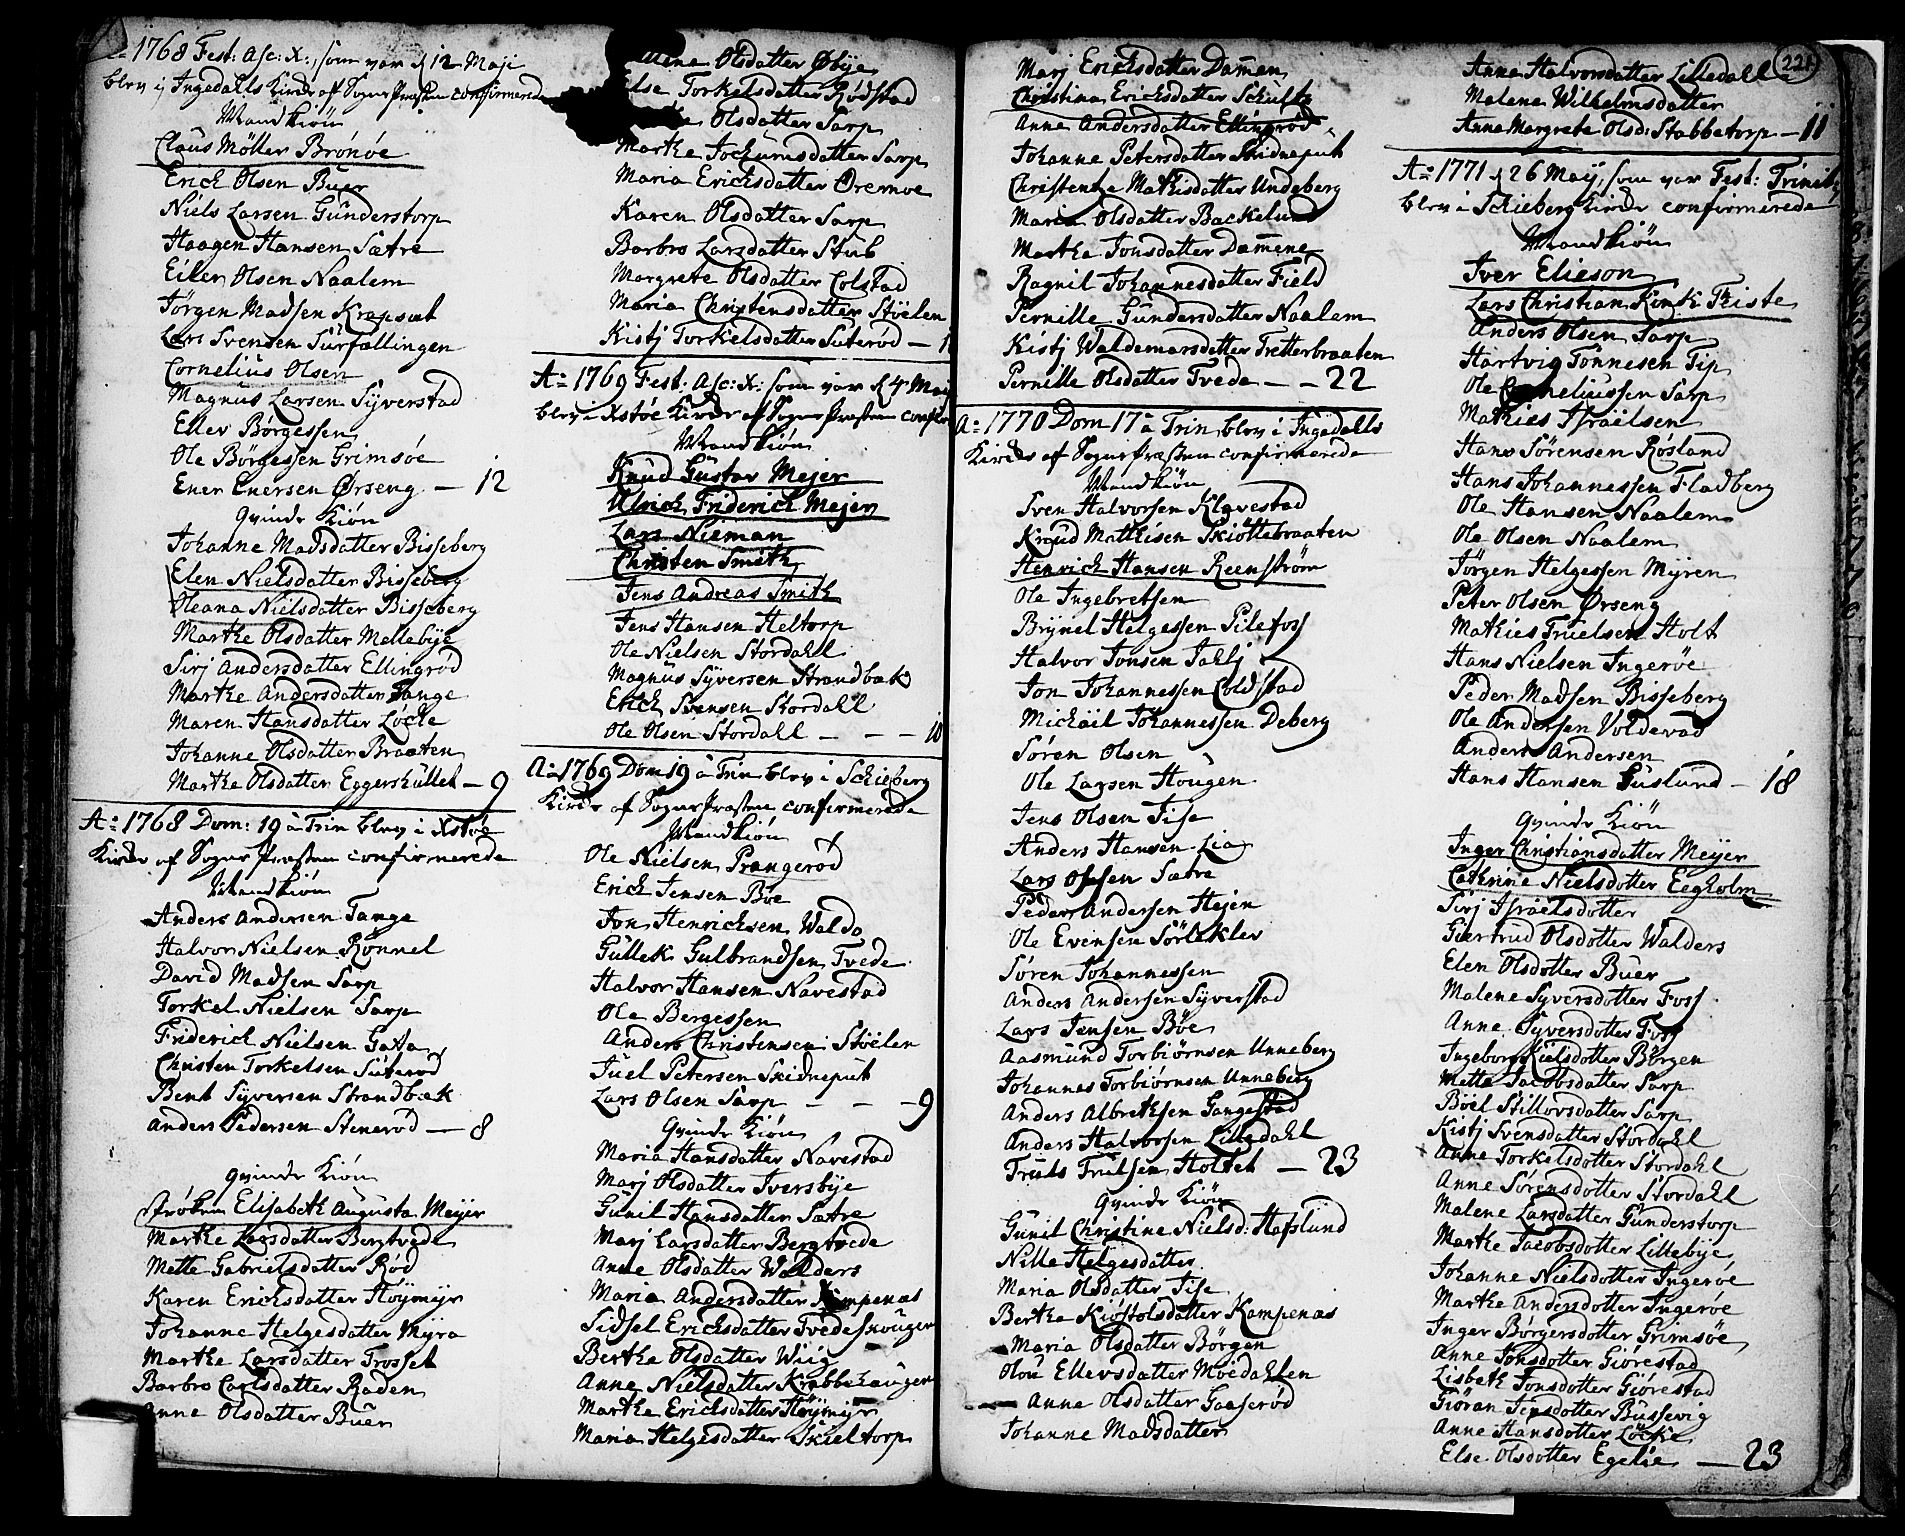 Ao 1768 Fest: Asc: X: som var d 12 Maji
blev i Ingedalls Kirche af Sogne Præsten confirmerede
Mandkiön
Claus Möller Brönöe
Erich Olsen Buer
Niels Larsen Gunderstorp
Haagen Hansen Sætre
Eiler Olsen Naalem
Jörgen Madsen Krapsæt
Lars Svensen Surfællingen
Cornelius Olsen
Magnus Larsen Syverstad
Ellev Börgessen
Ole Börgessen Grimsöe
Ener Enersen Örseng — 12
Qvinde Kiön
Johanne Madsdatter Bisseberg
Elen Nielsdatter Bisseberg
Oleana Nielsdatter Bisseberg
Marthe Olsdatter Mellebye
Sirj Andersdatter Ellingröd
Marthe Andersdatter Tange
Maren Hansdatter Löcke
Johanne Olsdatter Braaten
Marthe Olsdatter Eggershullet — 9
Ao 1768 Dom: 19 à Trin blev i Xstöe
Kirche af Sogne Præsten confirmerede
Mandkiön
Anders Andersen Tange
Halvor Nielsen Rönnel
David Madsen Sarp
Torkel Nielsen Sarp
Friderich Nielsen Gata
Christen Torkelsen Suteröd
Bent Syversen Strandbæk
Anders Pedersen Steneröd — 8
Qvinde Kiön
Fröken Elisabeth Augusta Meijer
Marthe Larsdatter Bergtvede
Mette Gabrielsdatter Röd
Karen Erichsdatter Höymyr
Johanne Helgesdatter Myra
Marthe Larsdatter Trosset
Barbro Carlsdatter Raden
Anne Olsdatter Buer
Olsdatter Öbye
Else Torkelsdatter Rödstad
Olsdatter Sarp
Marthe Jochumsdatter Sarp
Maria Erichsdatter Öremoe
Karen Olsdatter Sarp
Barbro Larsdatter Stub
Margrete Olsdatter Colstad
Maria Christensdatter Stöelen
Kistj Torkelsdatter Suteröd —
Ao 1769 Fest: Asc: X: som var d 4 Maij
blev i Xstöe Kirche af Sogne Præsten
Mandkiön
Knud Gustav Mejer
Ulrich Friderich Mejer
Lars Nieman
Christen Smith
Jens Andreas Smith
Jens Hansen Heltorp
Ole Nielsen Stordahl
Magnus Syversen Strandbæk
Erich Svensen Stordall
Ole Olsen Stordall — — — 10
Ao 1769 Dom 19 à Trin blev i Schieberg
Kirche af Sogne Præsten confirmerede
Mandkiön
Ole Nielsen Prangeröd
Erich Jensen Böe
Jon Henrichsen Walda
Gullek Gulbrandsen Tvede
Halvor Hansen Navestad
Ole Bergessen
Anders Christensen Stöelen
Juel Petersen Skidneput
Lars Olsen Sarp — — — 9
Qvinde Kiön
Maria Hansdatter Navestad
Marj Olsdatter Iversbye
Gunil Hansdatter Sætre
Marj Larsdatter Bergtvede
Anne Olsdatter Walders
Maria Andersdatter Kampenæs
Sidsel Erichsdatter Tvedeskougen
Berthe Olsdatter Wiig
Anne Nielsdatter Krabbehaugen
Marthe Erichsdatter Höymyr
Maria Helgesdatter Skieltorp
Marj Erichsdatter Dammen
Christina Erichsdatter Schults
Anne Andersdatter Ellingröd
Johanne Petersdatter Skidneput
Christentze Mathisdatter Undeberg
Maria Olsdatter Backelund
Marthe Jonsdatter Dammene
Ragnil Johannesdatter Field
Pernille Gundersdatter Naalem
Kistj Waldemarsdatter Tretterbraaten
Pernille Olsdatter Tvede — — 22
Ao 1770 Dom 17 à Trin blev i Ingedalls
Kirche af Sogne Præsten confirmerede
Mandkiön
Sven Halvorsen Klavestad
Knud Mathisen Skiöttebraaten
Henrich Hansen Reenström
Ole Ingebretsen
Brynel Helgessen Pilefoss
Halvor Jonsen Jahlj
Jon Johannessen Coldstad
Michäil Johannessen Deberg
Sören Olsen
Ole Larsen Hougen
Jens Olsen Tise
Anders Hansen Lia
Lars Olssen Sætre
Peder Andersen Hejen
Ole Evensen Sörlekler
Sören Johannessen
Anders Andersen Syverstad
Lars Jensen Böe
Aasmund Torbiörnsen Unneberg
Johannes Torbiörnsen Unneberg
Anders Albretsen Gangestad
Anders Halvorsen Lilledahl
Truls Trulsen Holtet — 23
Qvinde Kiön
Gunil Christine Nielsd: Hafslund
Nille Helgesdatter
Maria Olsdatter Tise
Berthe Kiöstolsdatter Kampenæs
Maria Olsdatter Börgen
Olou Ellevsdatter Moedahlen
Anne Olsdatter Gaaseröd
Johanne Madsdatter
221
Anne Halvorsdatter Lilledall
Malene Wilhelmsdatter
Anne Margrete Olsd: Stabbetorp — 11
Ao 1771 d 26 Maij, som var Fest: Trinit:
blev i Schieberg Kirche confirmerede
Mandkiön
Iver Elieson
Lars Christian Thiste
Anders Olsen Sarp
Hartvig Tönnesen Tip
Ole Corneliussen Sarp
Mathies Israelsen
Hans Sörensen Rösland
Hans Johannessen Fladberg
Ole Hansen Naalem
Ole Olsen Naalem
Jörgen Helgessen Myren
Peter Olsen Örseng
Mathies Truelsen Holt
Hans Nielsen Ingeröe
Peder Madsen Bisseberg
Ole Andersen Volderad
Anders Andersen
Hans Hansen Guslund — 18
Qvinde Kiön
Inger Christiansdatter Meijer
Cathrine Nielsdotter Eegholm
Sirj Israelsdotter
Giertrud Olsdotter Walders
Elen Olsdotter Buer
Malene Syversdotter Foss
Anne Syversdotter Foss
Ingeborg Kielsdotter Börgen
Mette Jacobsdatter Sarp
Böel Stillovsdatter Sarp
Kistj Svensdatter Stordahl
Anne Torkelsdatter Stordahl
Anne Sörensdatter Stordahl
Malene Larsdatter Gunderstorp
Marthe Jacobsdotter Lillebye
Johanne Nielsdotter Ingeröe
Marthe Andersdotter Ingeröe
Inger Börgersdotter Grimsöe
Anne Jonsdotter Giörestad
Lisbeth Jonsdotter Giörestad
Giöran Jensdotter Bussevig
Anne Hansdotter Löcke
Else Olsdotter Egelie — 23